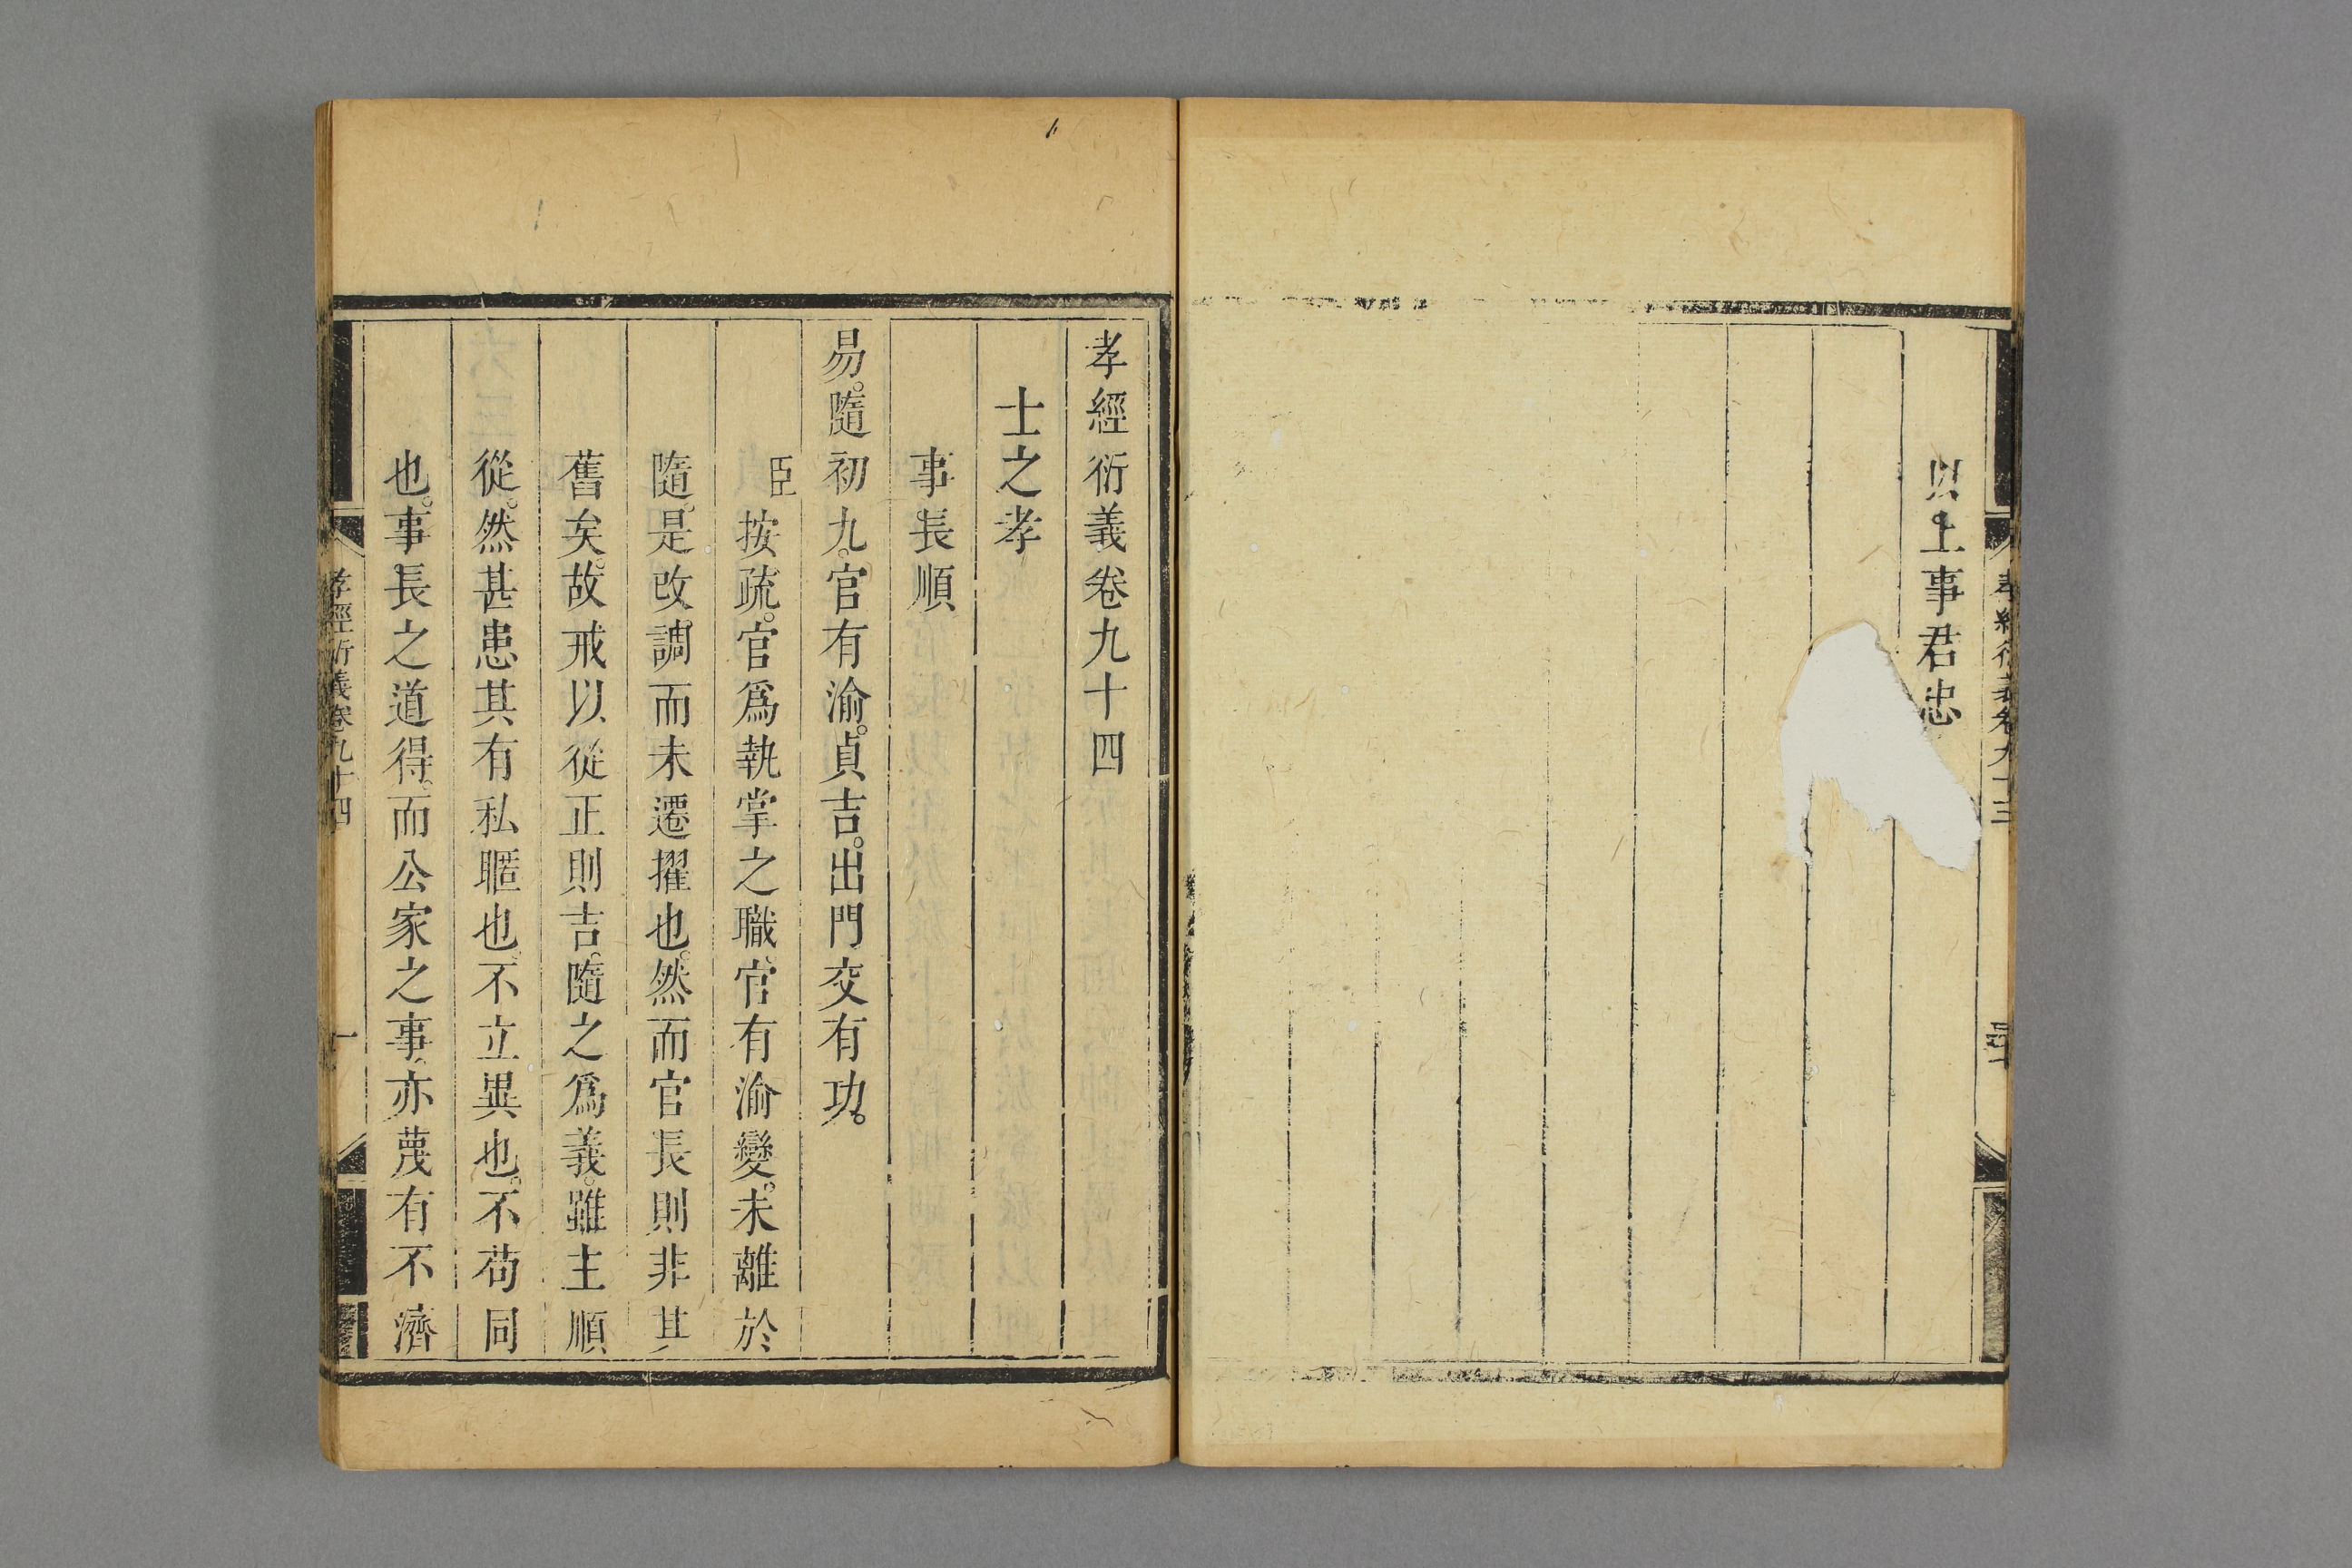 孝經衍義卷九十三
三十一
以上事君忠
孝經衍義卷九十四
士之孝
事長順
易。隨初九。官有渝。貞吉。出門交有功。
臣按疏。官爲執掌之職。官有渝變。未離於
隨。是改調而未遷擢也。然而官長則非其
舊矣。故戒以從正則吉。隨之爲義。雖主順
從。然甚患其有私暱也。不立異也。不苟同
也。事長之道得。而公家之事。亦蔑有不濟
孝經衍義卷九十四
一